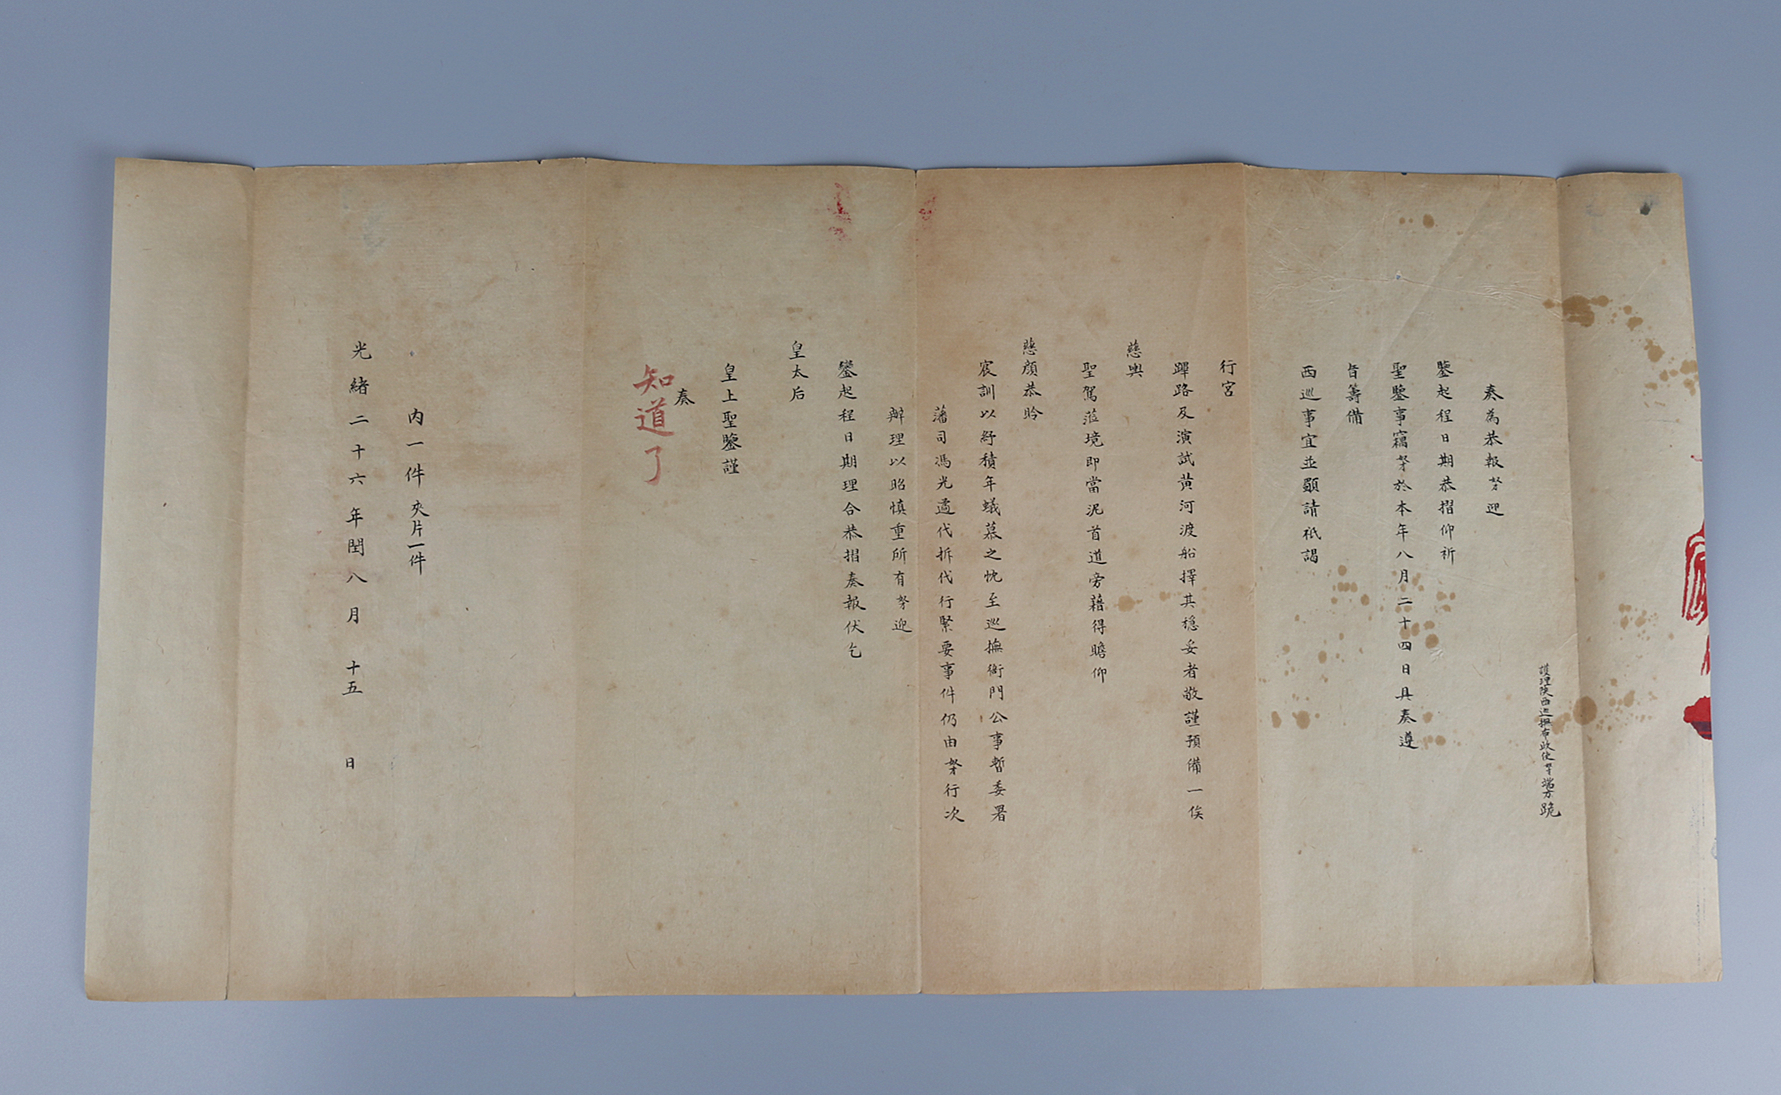 護理陝西巡撫布政使奴才端方跪
奏為恭報奴才迎
鑾起程日期恭摺仰祈
聖鑒事竊奴才於本年八月二十四日具奏遵
旨籌備
西巡事宜並顯請祇謁
行宮
蹕路及演試黃河渡船擇其穩妥者敬謹預備一俟
慈輿
聖駕蒞境即當泥首道旁藉得瞻仰
慈顏恭聆
宸訓以紓積年蟻慕之忱至巡撫衙門公事暫委署
藩司馮光遹代拆代行緊要事件仍由奴才行次
辦理以昭慎重所有奴才迎
鑾起程日期理合恭摺奏報伏乞
皇太后
皇上聖鑒謹
奏
知道了
內一件夾片一件
光緒二十六年閏八月十五日